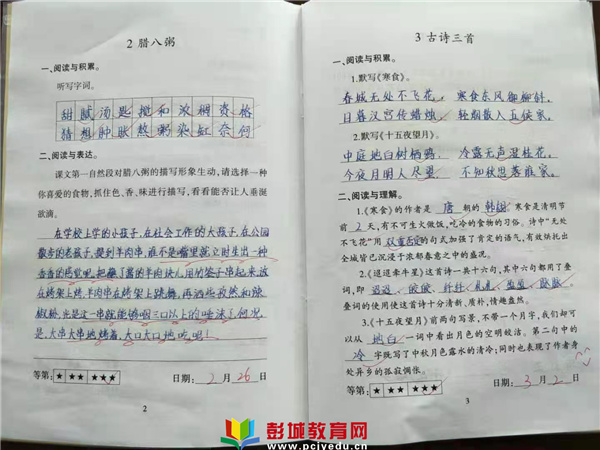 2 腊八粥
一、阅读与积累。
听写字词。
甜 腻 汤 匙 搅 和 浓 稠 资 格
猜 想 肿 胀 熬 粥 染 缸 奈 何
二、阅读与表达。
课文第一自然段对腊八粥的描写形象生动,请选择一种
你喜爱的食物,抓住色、香、味进行描写,看看能否让人垂涎
欲滴。
在学校上学的小孩子,在社会工作的大孩子,在公园
散步的老孩子,提到羊肉串,谁不是嘴里就立时生出一种
香香的感觉呢。把腌了酱的羊肉块儿用竹签子串起来,放
在烤架上烤,羊肉串在烤架上跳舞,再洒些孜然和辣
椒粉,光是这一串就能够咽三口以上的唾沫了,何况
是,大串大串地烤着,大口大口地吃呢!
等第: ★ ★★ ★★★
日期: 2 月 26 日
2
3 古诗三首
一、阅读与积累。
1.默写《寒食》。
春城无处不飞花, 寒食东风御柳斜。
日暮汉宫传蜡烛, 轻烟散入五侯家。
2.默写《十五夜望月》。
中庭地白树栖鸦, 冷露无声湿桂花。
今夜月明人尽望, 不知秋思落谁家。
二、阅读与理解。
1.《寒食》的作者是 唐 朝的 韩翃 。寒食是清明节
前 2 天,有不可生火做饭,吃冷的食物的习俗。诗中“无处
不飞花”用 双重否定 的句式加强了肯定的语气,有效烘托出
全城皆已沉浸于浓郁春意之中的盛况。
2.《迢迢牵牛星》这首诗一共十六句,其中六句都用了叠
词,即 迢迢 、 皎皎 、 纤纤 、 札札 、 盈盈 、 脉脉 。
叠词的使用使这首诗十分清新、质朴,情趣盎然。
3.《十五夜望月》前两句写景,不带一个月字,我们却可
以从 地白 一词中看出月色的空明皎洁。第二句中的
冷 字既写了中秋月色露水的清冷;同时也表现了作者身
处异乡的孤寂惆怅。
等第: ★ ★★ ★★★
日期: 3 月 2 日
3
彭城教育网
www.pcjyedu.cn